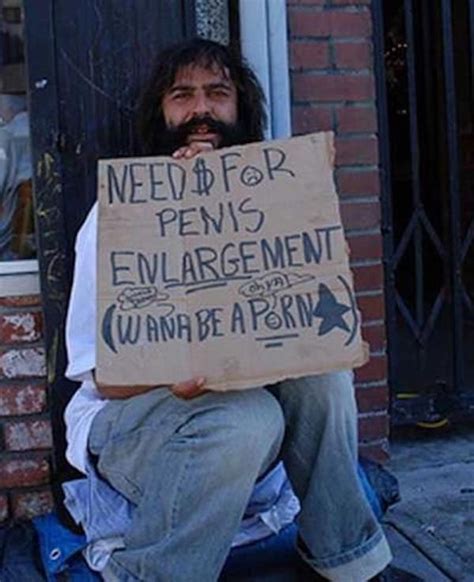 NEED $ FOR
PENIS
ENLARGEMENT
oh ya
(WANA BE A PORN ★)